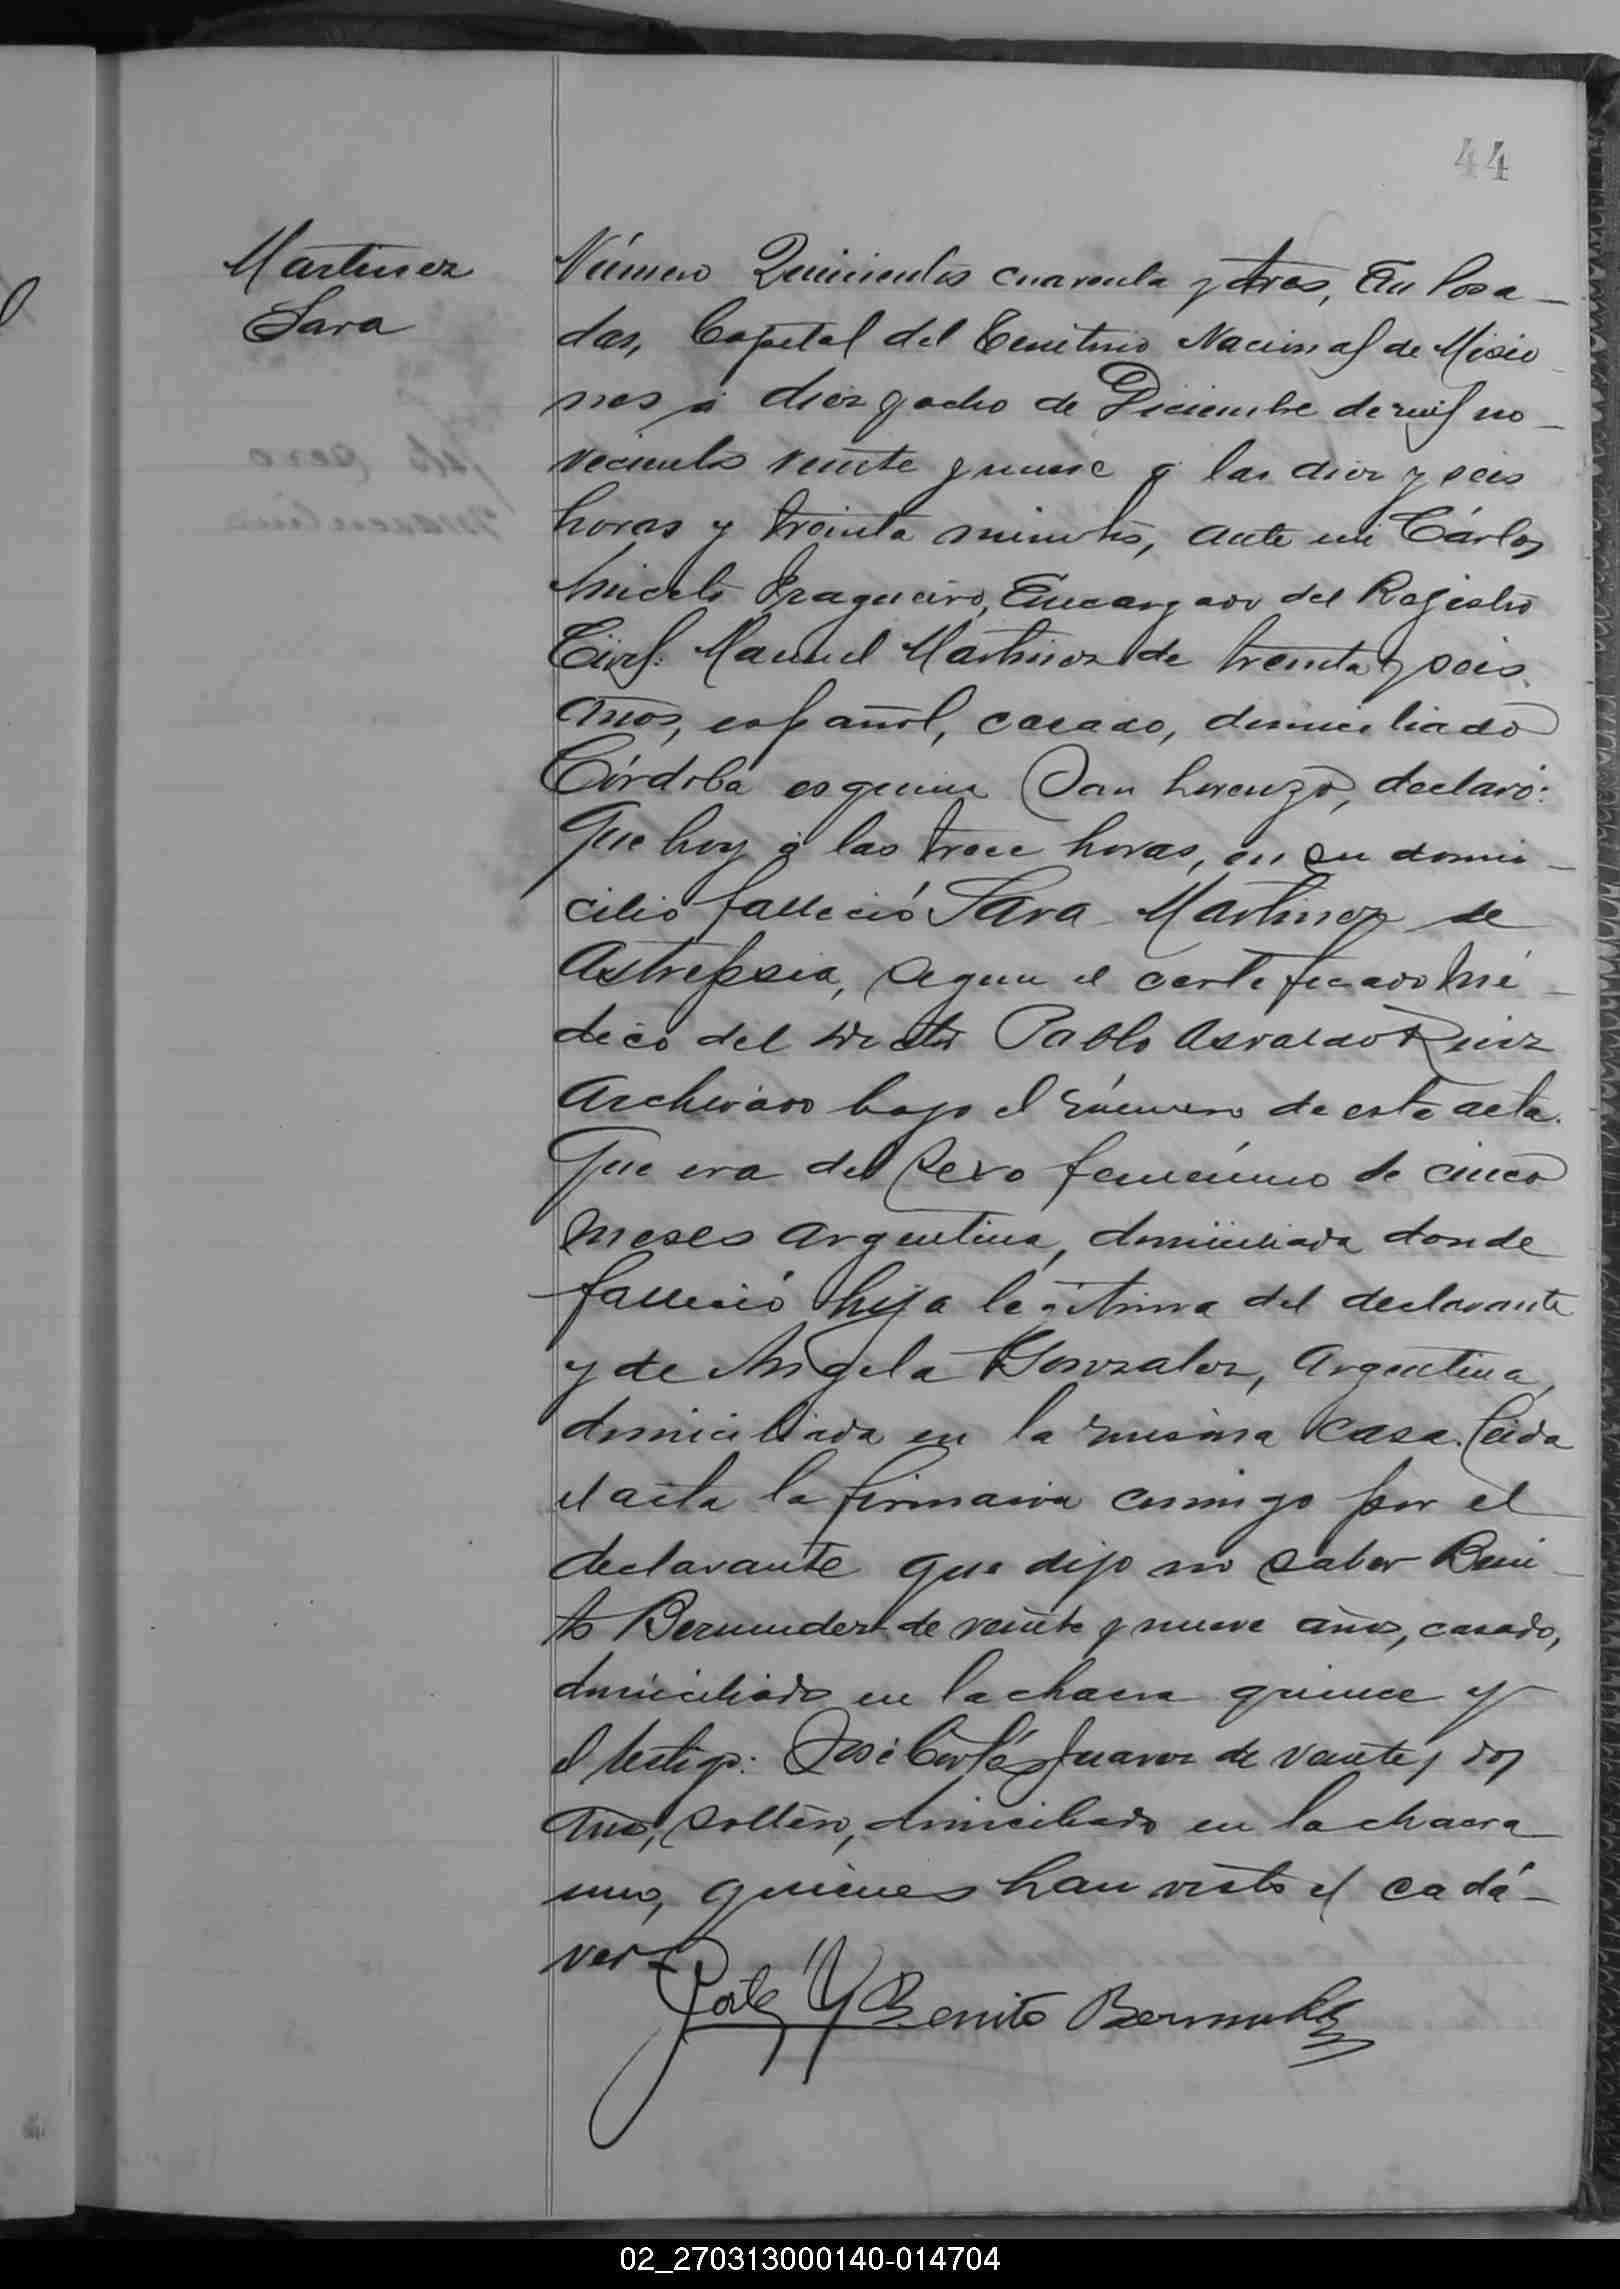 44
Martinez
Sara
Número Quinientos cuarenta y tres, En Posa-
das, Capital del Territorio Nacional de Misio-
nes a diez y ocho de Diciembre de mil no-
vecientos veinte y nueve a las diez y seis
horas y treinta minutos, ante mi Cárlos
Aniceto Fragueiro, Encargado del Rejistro
Civil: Manuel Martinez de treinta y seis
años, español, casado, domiciliado
Córdoba esquina San Lorenzo, declaró:
Que hoy á las trece horas, en su domi-
cilio falleció Sara Martinez de
Astrepsia, segun el certificado mé-
dico del doctor Pablo Osvaldo Ruiz
archivado bajo el número de esta acta.
Que era del sexo femenino de cinco
meses argentina, domiciliada donde
falleció hija legitima del declarante
y de Angela Gonzalez, Argentina,
domiciliada en la misma casa. Leida
el acta la firmaron conmigo por el
declarante que dijo no saber Beni-
to Bermudez de veinte y nueve años, casado,
domiciliado en la chacra quince y
el testigo: José Cortés Juarez de veinte y dos
años, soltero, domiciliado en la chacra
uno, quienes han visto el cadá-
ver
Benito Bermudez
02_270313000140-014704